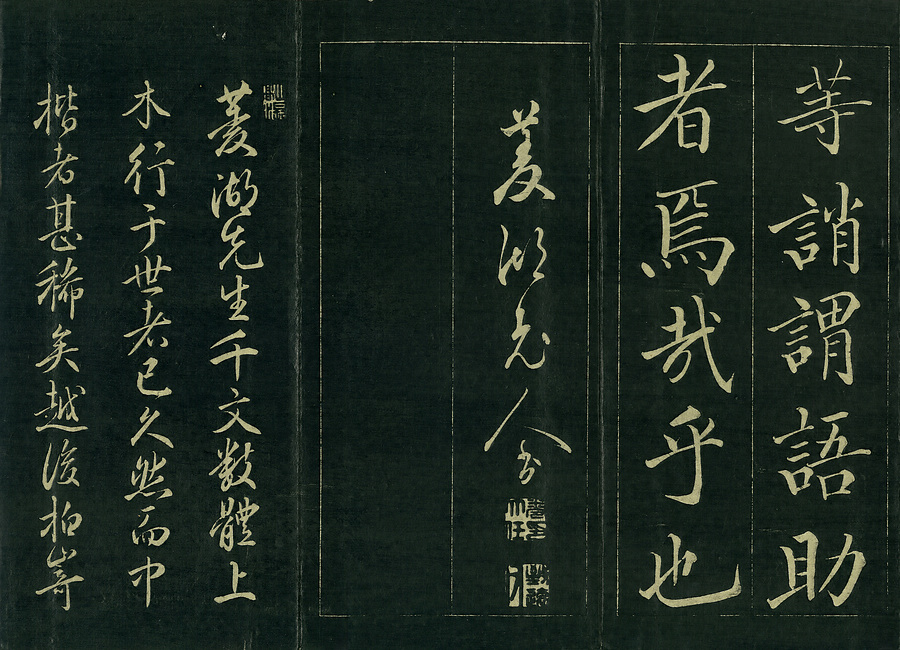 等誚謂語助
者焉哉乎也
菱湖老人書
菱湖先生千文数體上
木行于世者已久然而中
楷者甚稀矣越後柏嵜